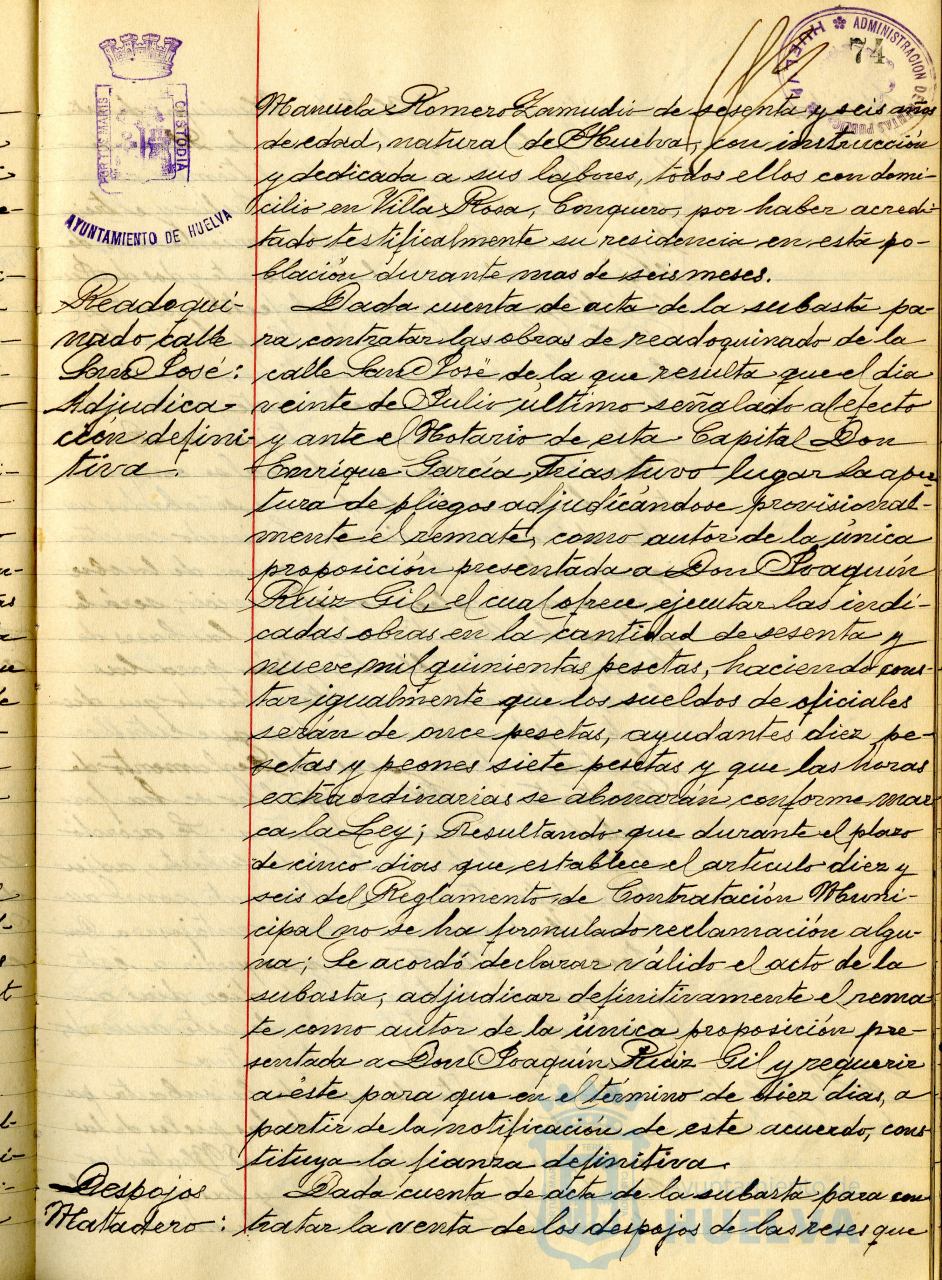 ADMINISTRACION DE RENTAS PUBLICAS
HUELVA
74
PORTUS MARIS
CUSTODIA
AYUNTAMIENTO DE HUELVA
Manuela Romero Zamudio de sesenta y seis años
de edad, natural de Huelva, con instrucción
y dedicada a sus labores, todos ellos con domi-
cilio en Villa Rosa, Conquero, por haber acredi-
tado testificalmente su residencia en esta po-
blación durante mas de seis meses.
Readoqui-
nado calle
San José:
Adjudica-
ción defini-
tiva.
Dada cuenta de acta de la subasta pa-
ra contratar las obras de readoquinado de la
calle San José de la que resulta que el dia
veinte de Julio último señalado al efecto
y ante el Notario de esta Capital Don
Enrique García Trias tuvo lugar la aper-
tura de pliegos adjudicándose provisional-
mente el remate, como autor de la única
proposición presentada a Don Joaquín
Ruiz Gil, el cual ofrece ejecutar las indi-
cadas obras en la cantidad de sesenta y
nueve mil quinientas pesetas, haciendo cons-
tar igualmente que los sueldos de oficiales
serán de once pesetas, ayudantes diez pe-
setas y peones siete pesetas y que las horas
extraordinarias se abonarán conforme mar-
ca la Ley; Resultando que durante el plazo
de cinco dias que establece el artículo diez y
seis del Reglamento de Contratación Muni-
cipal no se ha formulado reclamación algu-
na; Se acordó declarar válido el acto de la
subasta, adjudicar definitivamente el rema-
te como autor de la única proposición pre-
sentada a Don Joaquín Ruiz Gil y requerir
a éste para que en el término de diez dias, a
partir de la notificación de este acuerdo, cons-
tituya la fianza definitiva.
Despojos
Matadero:
Dada cuenta de acta de la subasta para con
tratar la venta de los despojos de las reses que
Ayuntamiento de
HUELVA